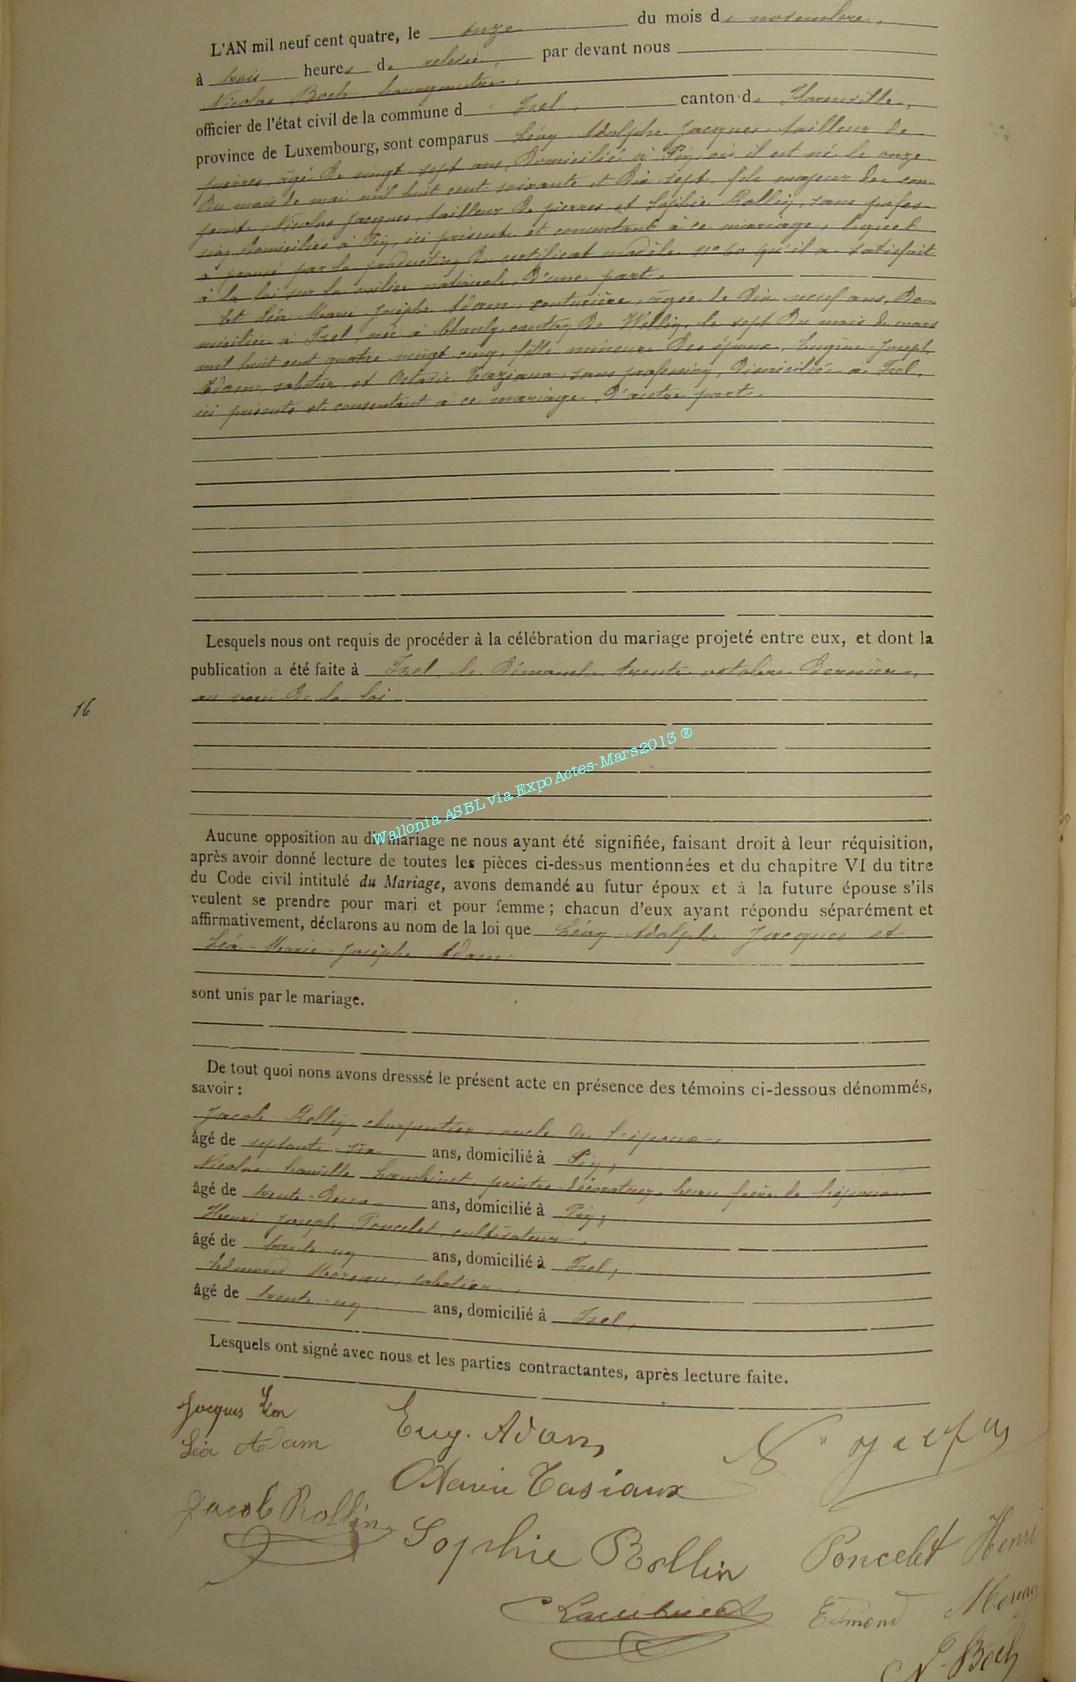 L'AN mil neuf cent quatre, le onze du mois de novembre,
à trois heures de relevée, par devant nous
Nicolas Boch, bourgmestre,
officier de l'état civil de la commune d'Izel, canton de Florenville,
province de Luxembourg, sont comparus Léon Adolphe Jacques, tailleur de
pierres, âgé de vingt sept ans, domicilié à Pin, où il est né le onze
du mois de mai mil huit cent soixante et dix sept, fils majeur des con-
joints Nicolas Jacques, tailleur de pierres et Sophie Rollin, sans profes-
sion, domiciliés à Pin, ici présents et consentant à ce mariage, lequel
a prouvé par la production du certificat modèle n° 40 qu'il a satisfait
à la loi sur la milice nationale, d'une part.
Et Léa Marie Josèphe Adam, couturière, âgée de dix neuf ans, do-
miciliée à Izel, née à Chanly, canton de Wellin, le sept du mois de mars
mil huit cent quatre vingt cinq, fille mineure des époux Eugène Joseph
Adam, sabotier et Octavie Tasiaux, sans profession, domiciliés à Izel,
ici présents et consentant à ce mariage, d'autre part.
Lesquels nous ont requis de procéder à la célébration du mariage projeté entre eux, et dont la
publication a été faite à Izel, le dimanche trente octobre dernier,
au vœu de la loi
16
Wallonia ASBL via ExpoActes-Mars2013 ®
Aucune opposition au dit mariage ne nous ayant été signifiée, faisant droit à leur réquisition,
après avoir donné lecture de toutes les pièces ci-dessus mentionnées et du chapitre VI du titre
du Code civil intitulé du Mariage, avons demandé au futur époux et à la future épouse s'ils
veulent se prendre pour mari et pour femme ; chacun d'eux ayant répondu séparément et
affirmativement, déclarons au nom de la loi que Léon Adolphe Jacques et
Léa Marie Josèphe Adam
sont unis par le mariage.
De tout quoi nons avons dresssé le présent acte en présence des témoins ci-dessous dénommés,
savoir :
Jacob Rollin, charpentier, oncle de l'époux,
âgé de septante six ans, domicilié à Pin,
Nicolas peintre décorateur, beau frère de l'époux
âgé de trente-deux ans, domicilié à Pin,
Henri Joseph Poncelet, cultivateur,
âgé de trente un ans, domicilié à Izel,
Edmond Moreau, sabotier,
âgé de trente-un ans, domicilié à Izel,
Lesquels ont signé avec nous et les parties contractantes, après lecture faite.
Jacques Léon
Léa Adam
Eug. Adam
N. Jacques
Octavie Tasiaux
Jacob Rollin
Sophie Rollin
Poncelet Henri
Edmond Moreau
N. Boch